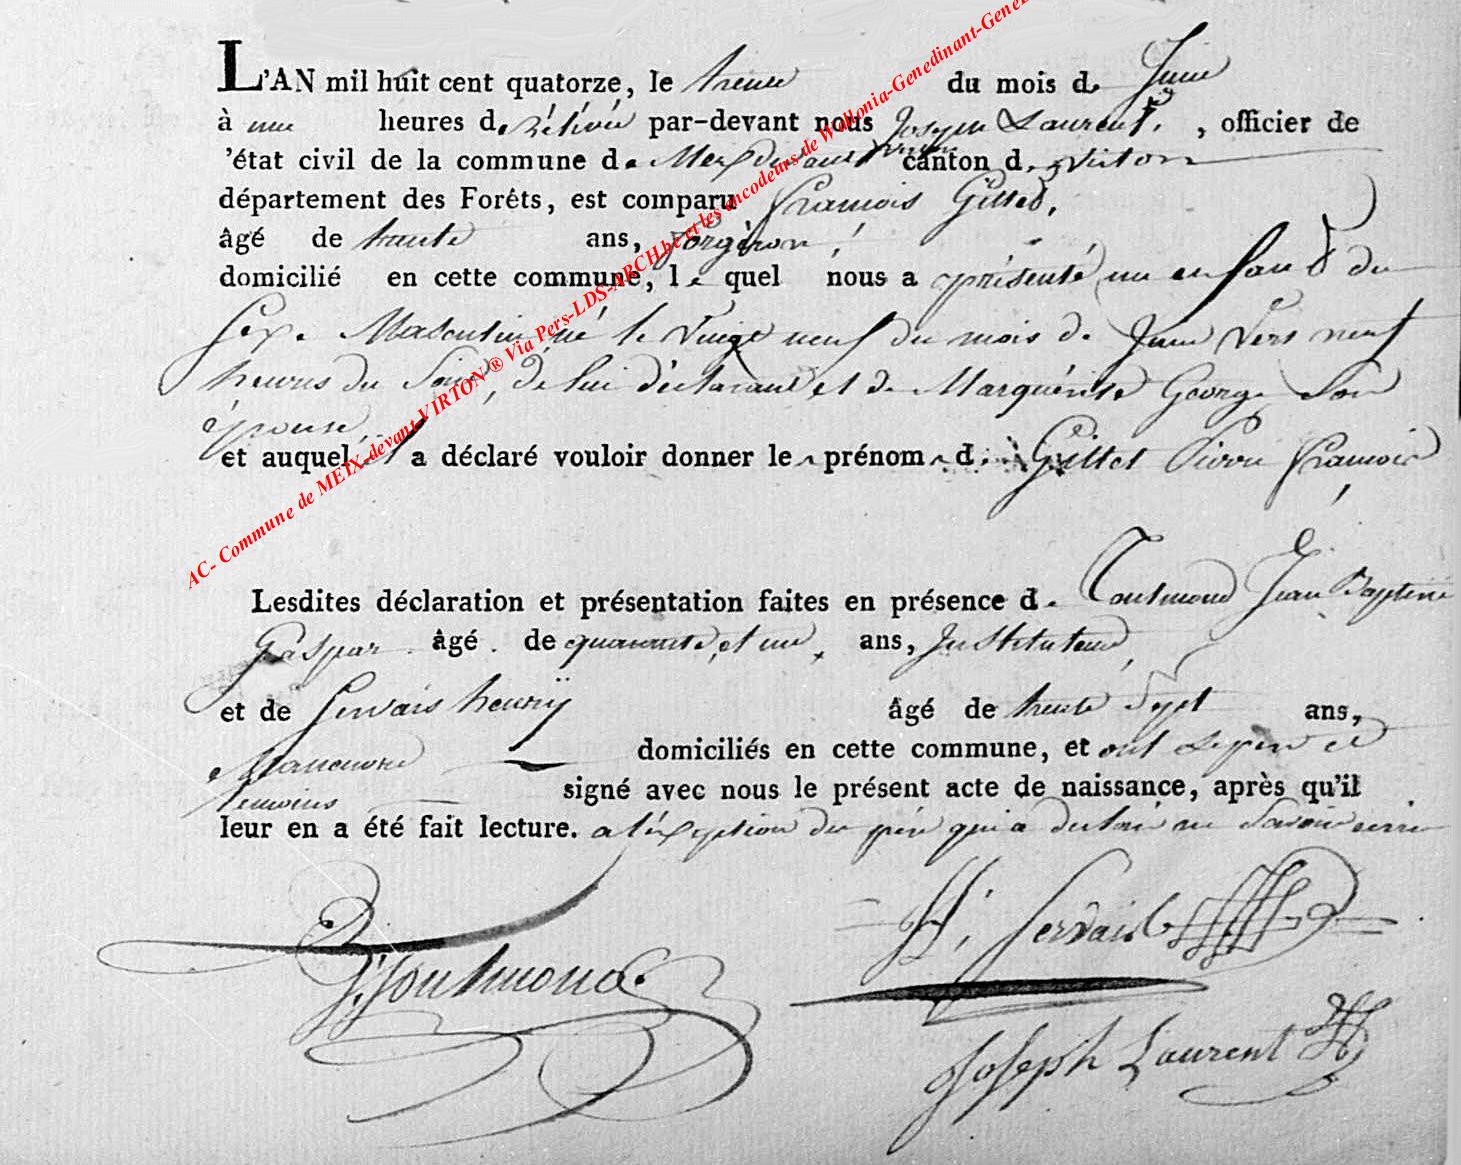 L'AN mil huit cent quatorze, le trente du mois de Juin
à une heures de rélévée par-devant nous Joseph Laurent, , officier de
'état civil de la commune de Meix devant virton canton de virton
département des Forêts, est comparu francois Gillet,
âgé de trente ans, forgéron,
domicilié en cette commune, le quel nous a présenté un enfant du
sexe Masculin né le vingt neuf du mois de Juin vers neuf
heures du soir, de lui déclarant et de Marguérite George son
épouse,
et auquel il a déclaré vouloir donner le prénom de Gillet Pierre francois
Lesdites déclaration et présentation faites en présence de Toutmond Jean Baptiste
Gaspar âgé de quarante et un ans, Instituteur,
et de Servais henrÿ âgé de trente sept ans,
Manœuvre domiciliés en cette commune, et ont le pere et
temoins signé avec nous le présent acte de naissance, après qu'il
leur en a été fait lecture. a l'exeption du père qui a declaré ne savoir
J. Toutmond
H, Servais
Joseph Laurent
AC- Commune de MEIX-devant-VIRTON ® Via Pers-LDS-ARCH.be et les encodeurs de Wallonia-Genedinant-Gene